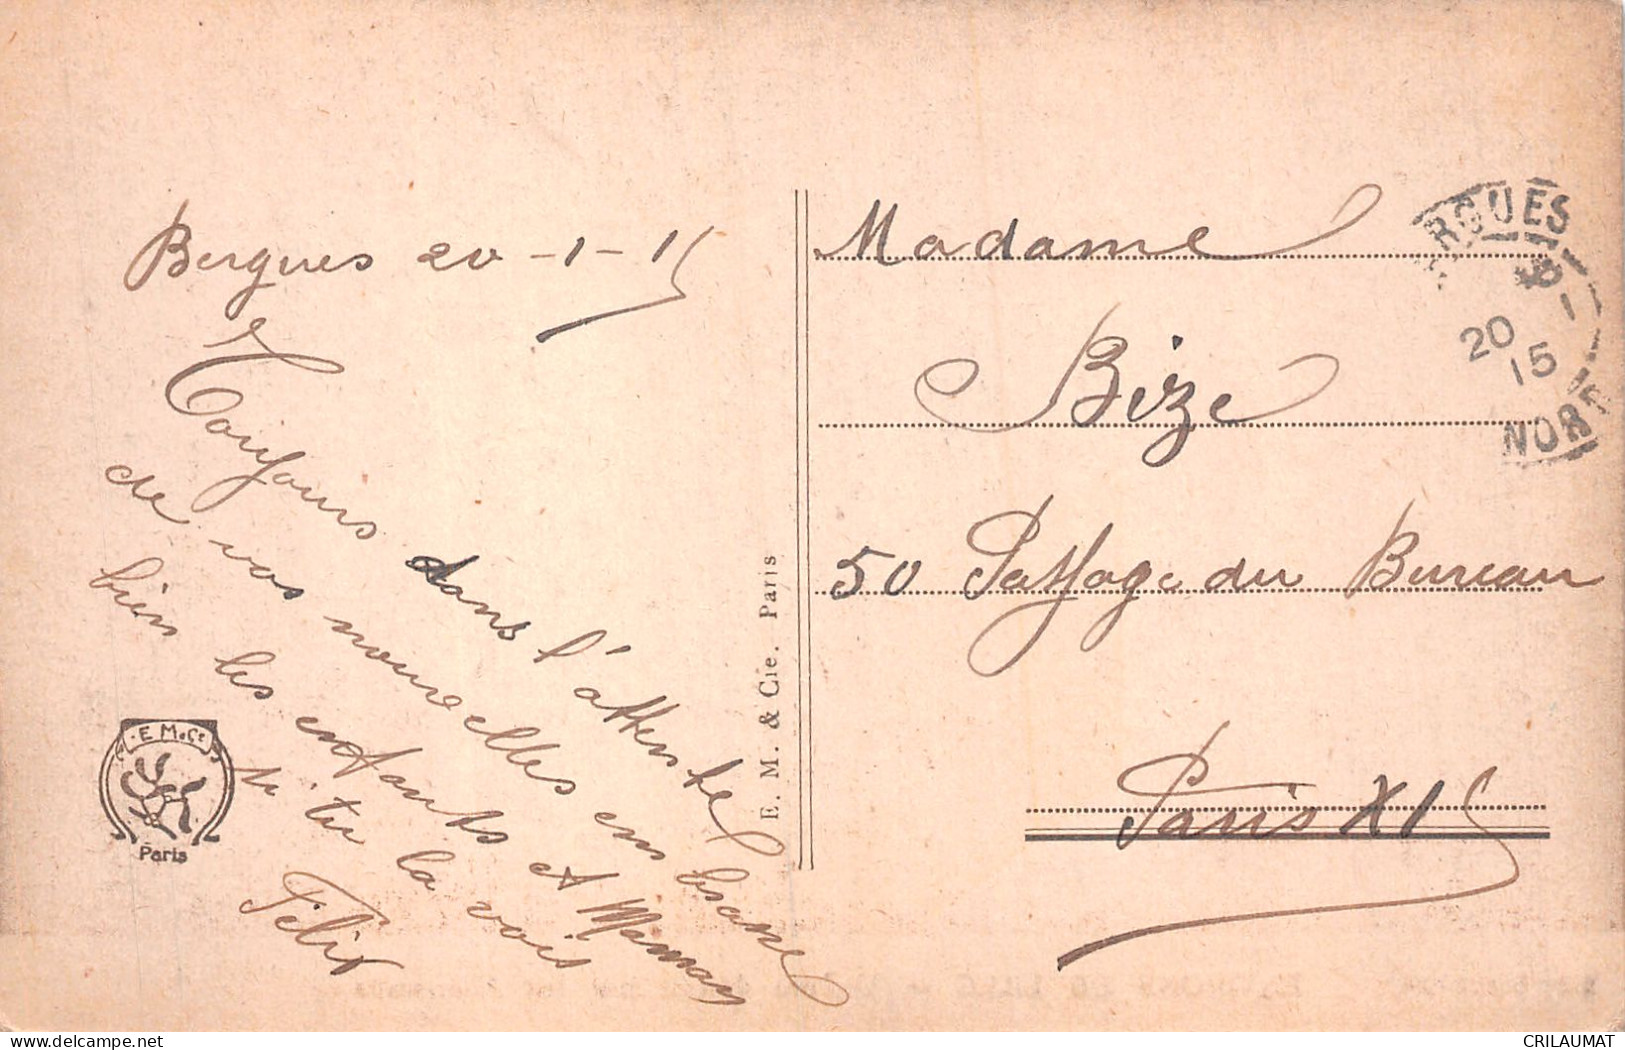 Bergues 20-1-15
Toujours dans l'attente
de vos nouvelles en brame
bien les enfants et Maman
si tu la vois
Félix
E M & Cie
Paris
E. M. & Cie. Paris
Madame
Bize
50 Passage du Bureau
Paris XI
RGUES
20 1
15
NORD
delcampe.net
CRILAUMAT